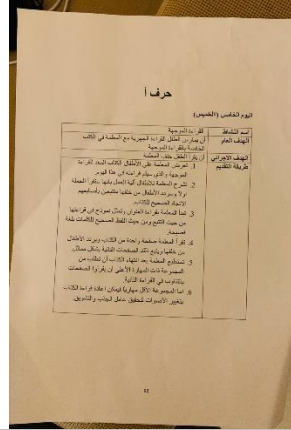 حرف أ
اليوم الخامس (الخميس)
اسم النشاط القراءة الموجهة
الهدف العام أن يمارس الطفل القراءة الجهرية مع المعلمة في الكتب
الخاصة بالقراءة الموجهة
الهدف الإجرائي أن يقرأ الطفل خلف المعلمة
طريقة التقديم 1. تعرض المعلمة على الأطفال الكتاب المعد للقراءة
الموجهة والذي سيتم قراءته في هذا اليوم.
2. تشرح المعلمة للأطفال آلية العمل بأنها ستقرأ الجملة
أولا ويردد الأطفال من خلفها متتبعين بأصابعهم
الاتجاه الصحيح للكتاب.
3. تبدأ المعلمة بقراءة العنوان وتمثل نموذج في قراءتها
من حيث التتبع ومن حيث اللفظ الصحيح للكلمات بلغة
فصيحة.
4. تقرأ المعلمة صفحة واحدة من الكتاب ويردد الأطفال
من خلفها ويتبع ذلك الصفحات التالية بشكل مماثل.
5. تستطيع المعلمة بعد انتهاء الكتاب أن تطلب من
المجموعة ذات المهارة الأعلى أن يقرأوا الصفحات
بالتناوب في القراءة الثانية.
6. أما المجموعة الأقل مهارة فيمكن إعادة قراءة الكتاب
بتغيير الأصوات لتحقيق عامل الجذب والتشويق.